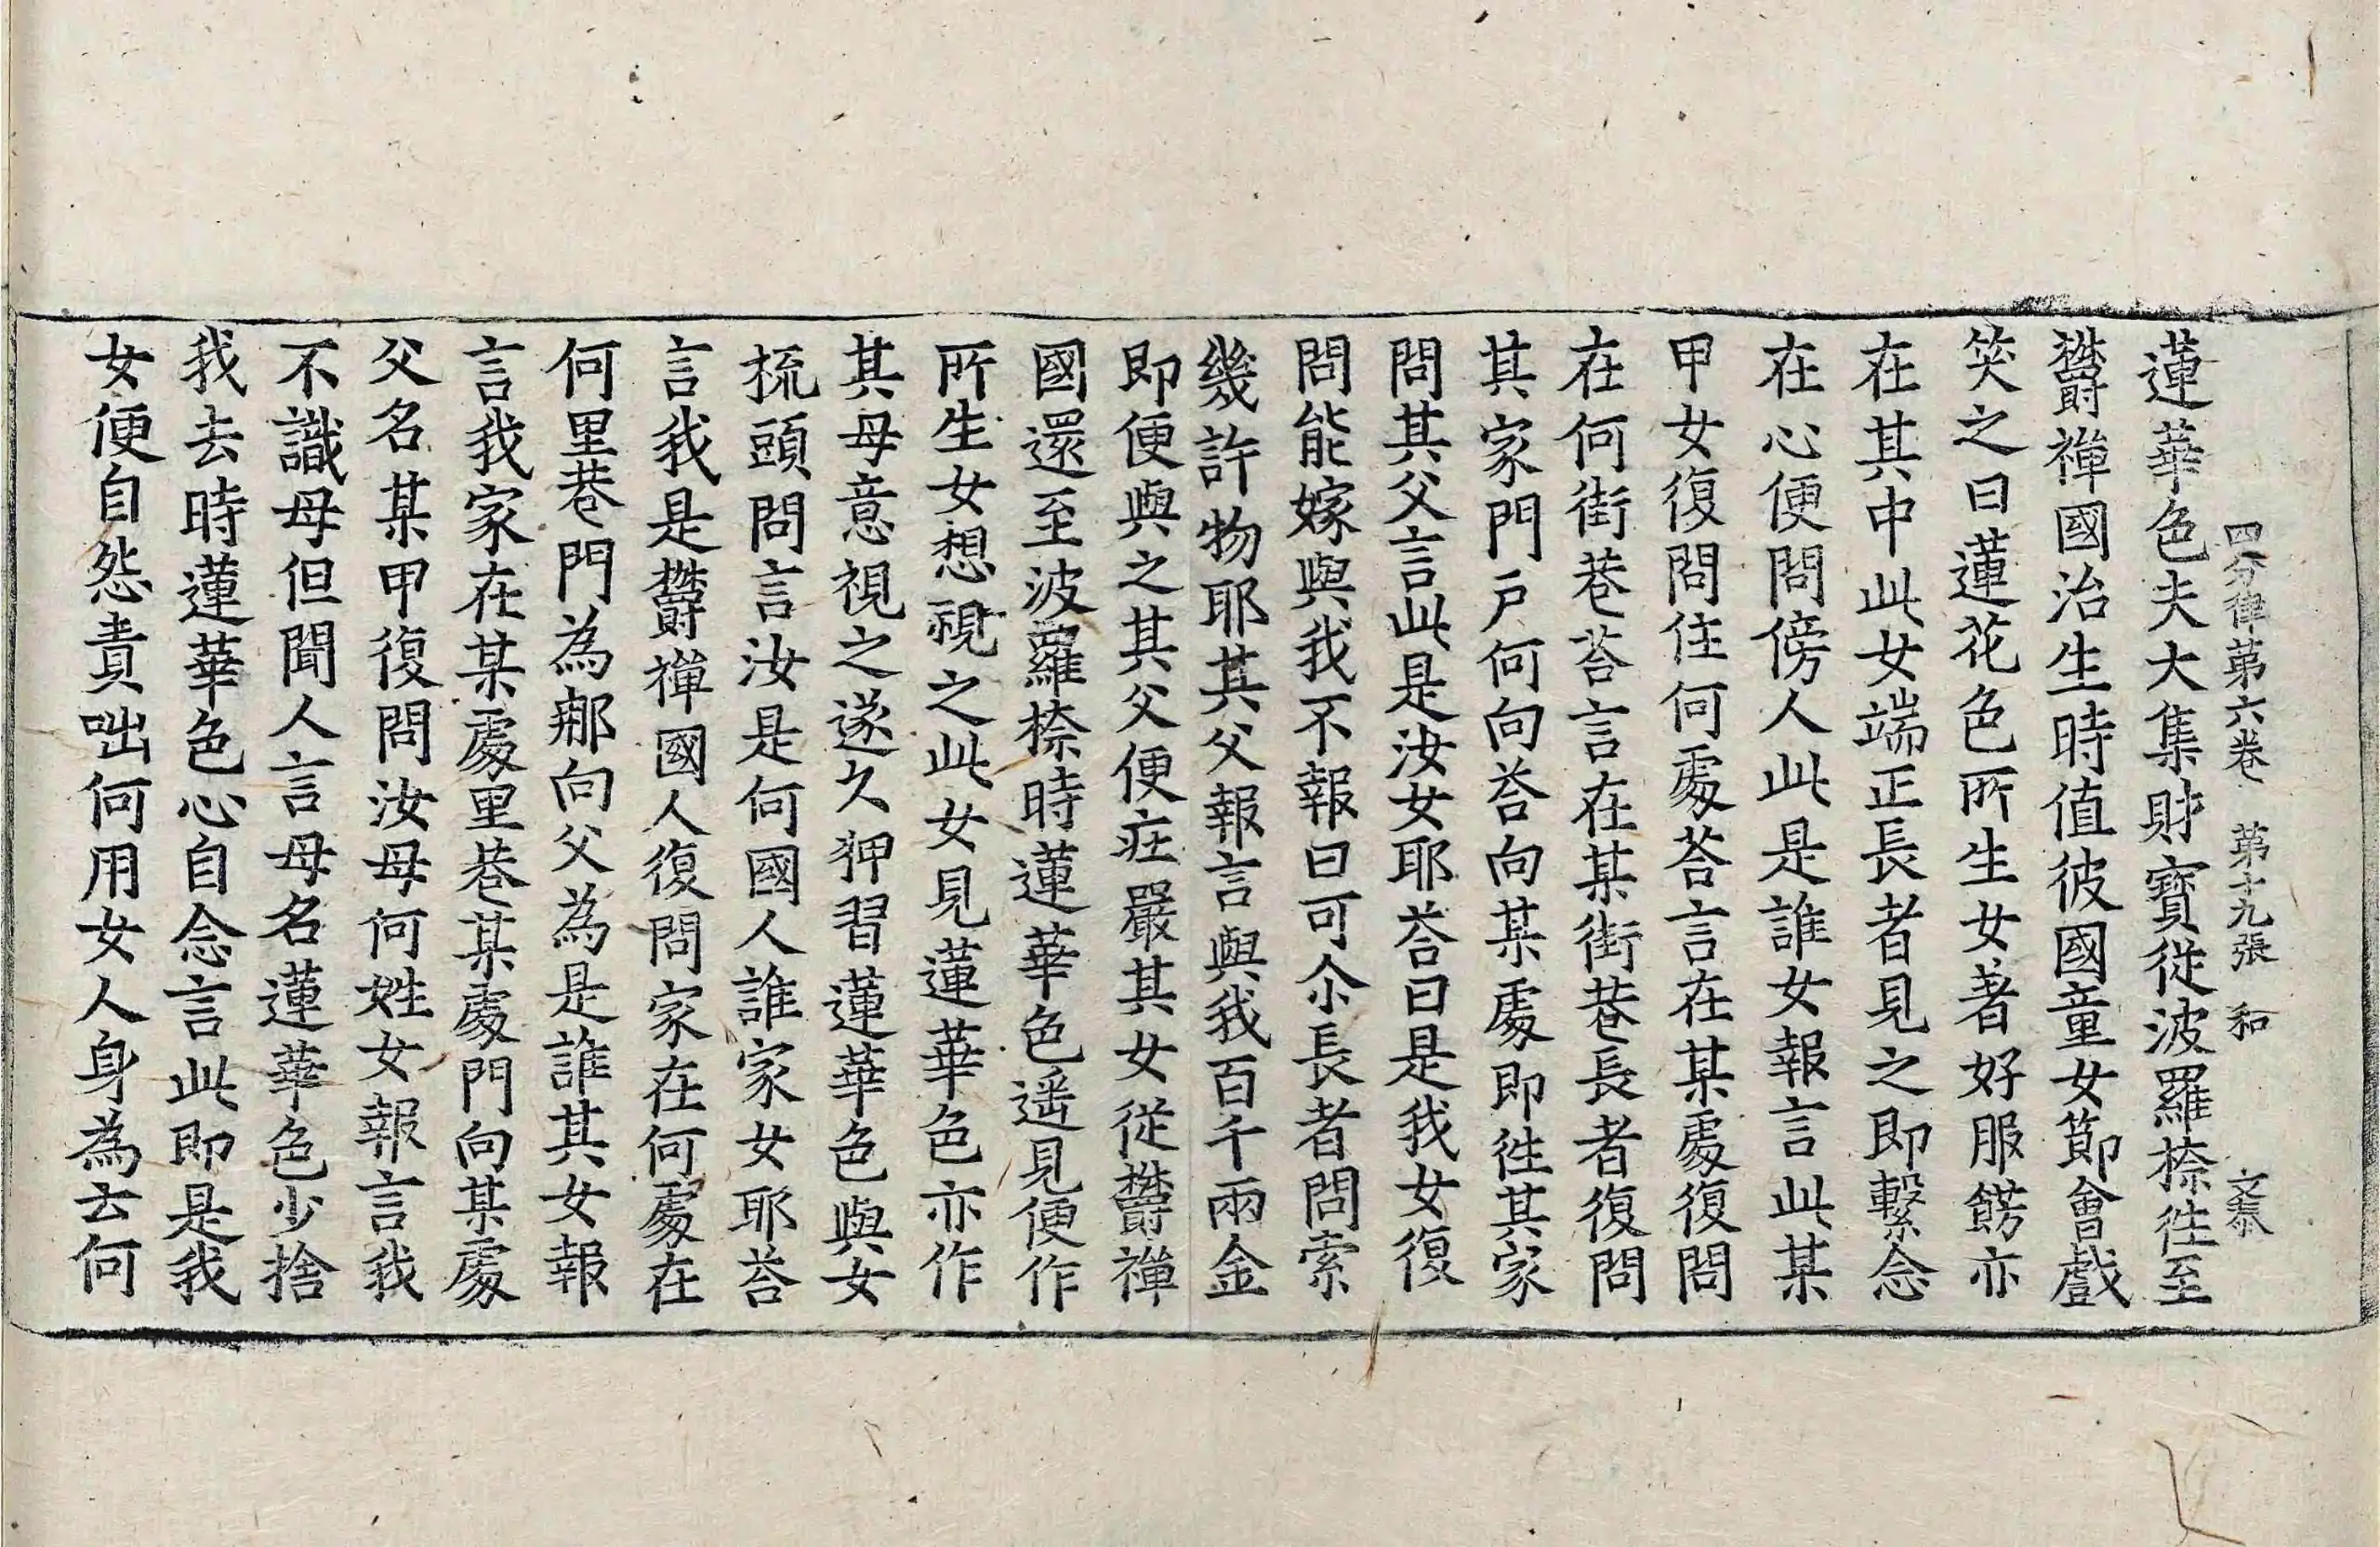 四分律第六卷 第十九張 和 文泰
蓮華色夫大集財寶從波羅㮈徃至
欝禪國治生時值彼國童女節會戲
笑之日蓮花色所生女著好服餝亦
在其中此女端正長者見之即繫念
在心便問傍人此是誰女報言此某
甲女復問住何處荅言在某處復問
在何街巷荅言在某街巷長者復問
其家門戶何向荅向某處即徃其家
問其父言此是汝女耶荅曰是我女復
問能嫁與我不報曰可尒長者問索
幾許物耶其父報言與我百千兩金
即便與之其父便庄嚴其女從欝禪
國還至波羅㮈時蓮華色遥見便作
所生女想視之此女見蓮華色亦作
其母意視之遂久狎習蓮華色與女
梳頭問言汝是何國人誰家女耶荅
言我是欝禪國人復問家在何處在
何里巷門為那向父為是誰其女報
言我家在某處里巷某處門向某處
父名某甲復問汝母何姓女報言我
不識母但聞人言母名蓮華色少捨
我去時蓮華色心自念言此即是我
女便自怨責咄何用女人身為云何